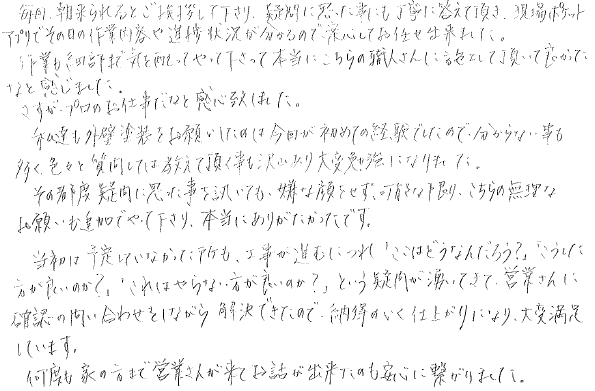 毎回、朝来られるとご挨拶して下さり、疑問に思った事にも丁寧に答えて頂き、現場ポケット
アプリでその日の作業内容や進捗状況が分かるので安心してお任せ出来ました。
作業も細部まで気を配ってやって下さって本当にこちらの職人さんにお色として頂いて良かった
なと感じました。
さすがプロのお仕事だなと感心致しました。
私達も外壁塗装をお願いしたのは今回が初めての経験でしたので、分からない事も
多く、色々と質問しては教えて頂く事も沢山あり大変勉強になりました。
その都度疑問に思った事を訊いても、嫌な顔をせず、可能な限り、こちらの無理な
お願いも追加でやって下さり、本当にありがたかったです。
当初は予定していなかった所も、工事が進むにつれ「ここはどうなんだろう?」「こうした
方が良いのか?」「これはやらない方が良いのか?」という疑問が湧いてきて、営業さんに
確認の問い合わせをしながら解決できたので、納得のいく仕上がりになり、大変満足
しています。
何度も家の方まで営業さんが来てお話が出来たのも安心に繋がりました。